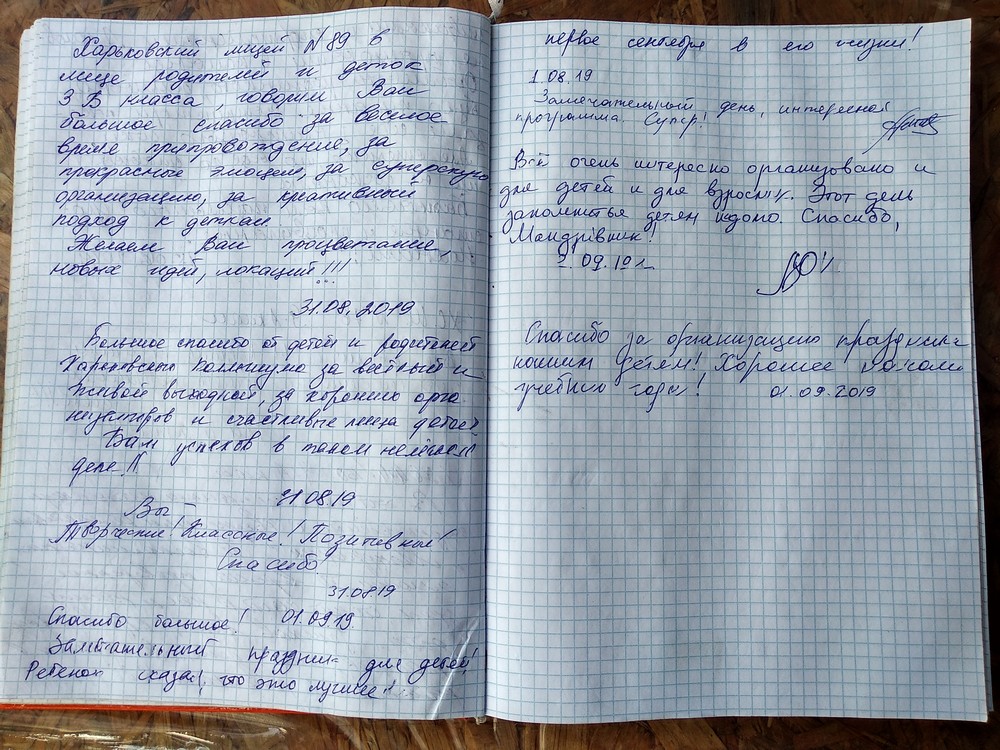 Харьковский лицей №89 в
лице родителей и деток
3 Б класса, говорим Вам
большое спасибо за веселое
время припровождение, за
прекрасные эмоции, за суперскую
организацию, за креативный
подход к деткам.
Желаем Вам процветание,
новых идей, локаций!!!
31.08.2019
Большое спасибо от детей и родителей
Харьковского Коллегиума за
живой выходной, за хороших орга
низаторов и счастливые лица детей
Вам успехов в таком нелёгком
деле!!
31.08.19
Вы –
Творческие! Классные! Позитивные!
Спасибо!
31.08.19
Спасибо большое! 01.09.19.
Замечательный праздник для детей!
Ребенок сказал, что это лучшее
первое сентября в его жизни!
1.08.19
Замечательный день, интересная
программа. Супер!
Всё очень интересно организовано и
для детей и для взрослых. Этот день
запомниться детям надолго. Спасибо,
Мандрівник!
Спасибо за организацию праздника
нашим детям! Хорошее начало
учебного года! 01.09.2019